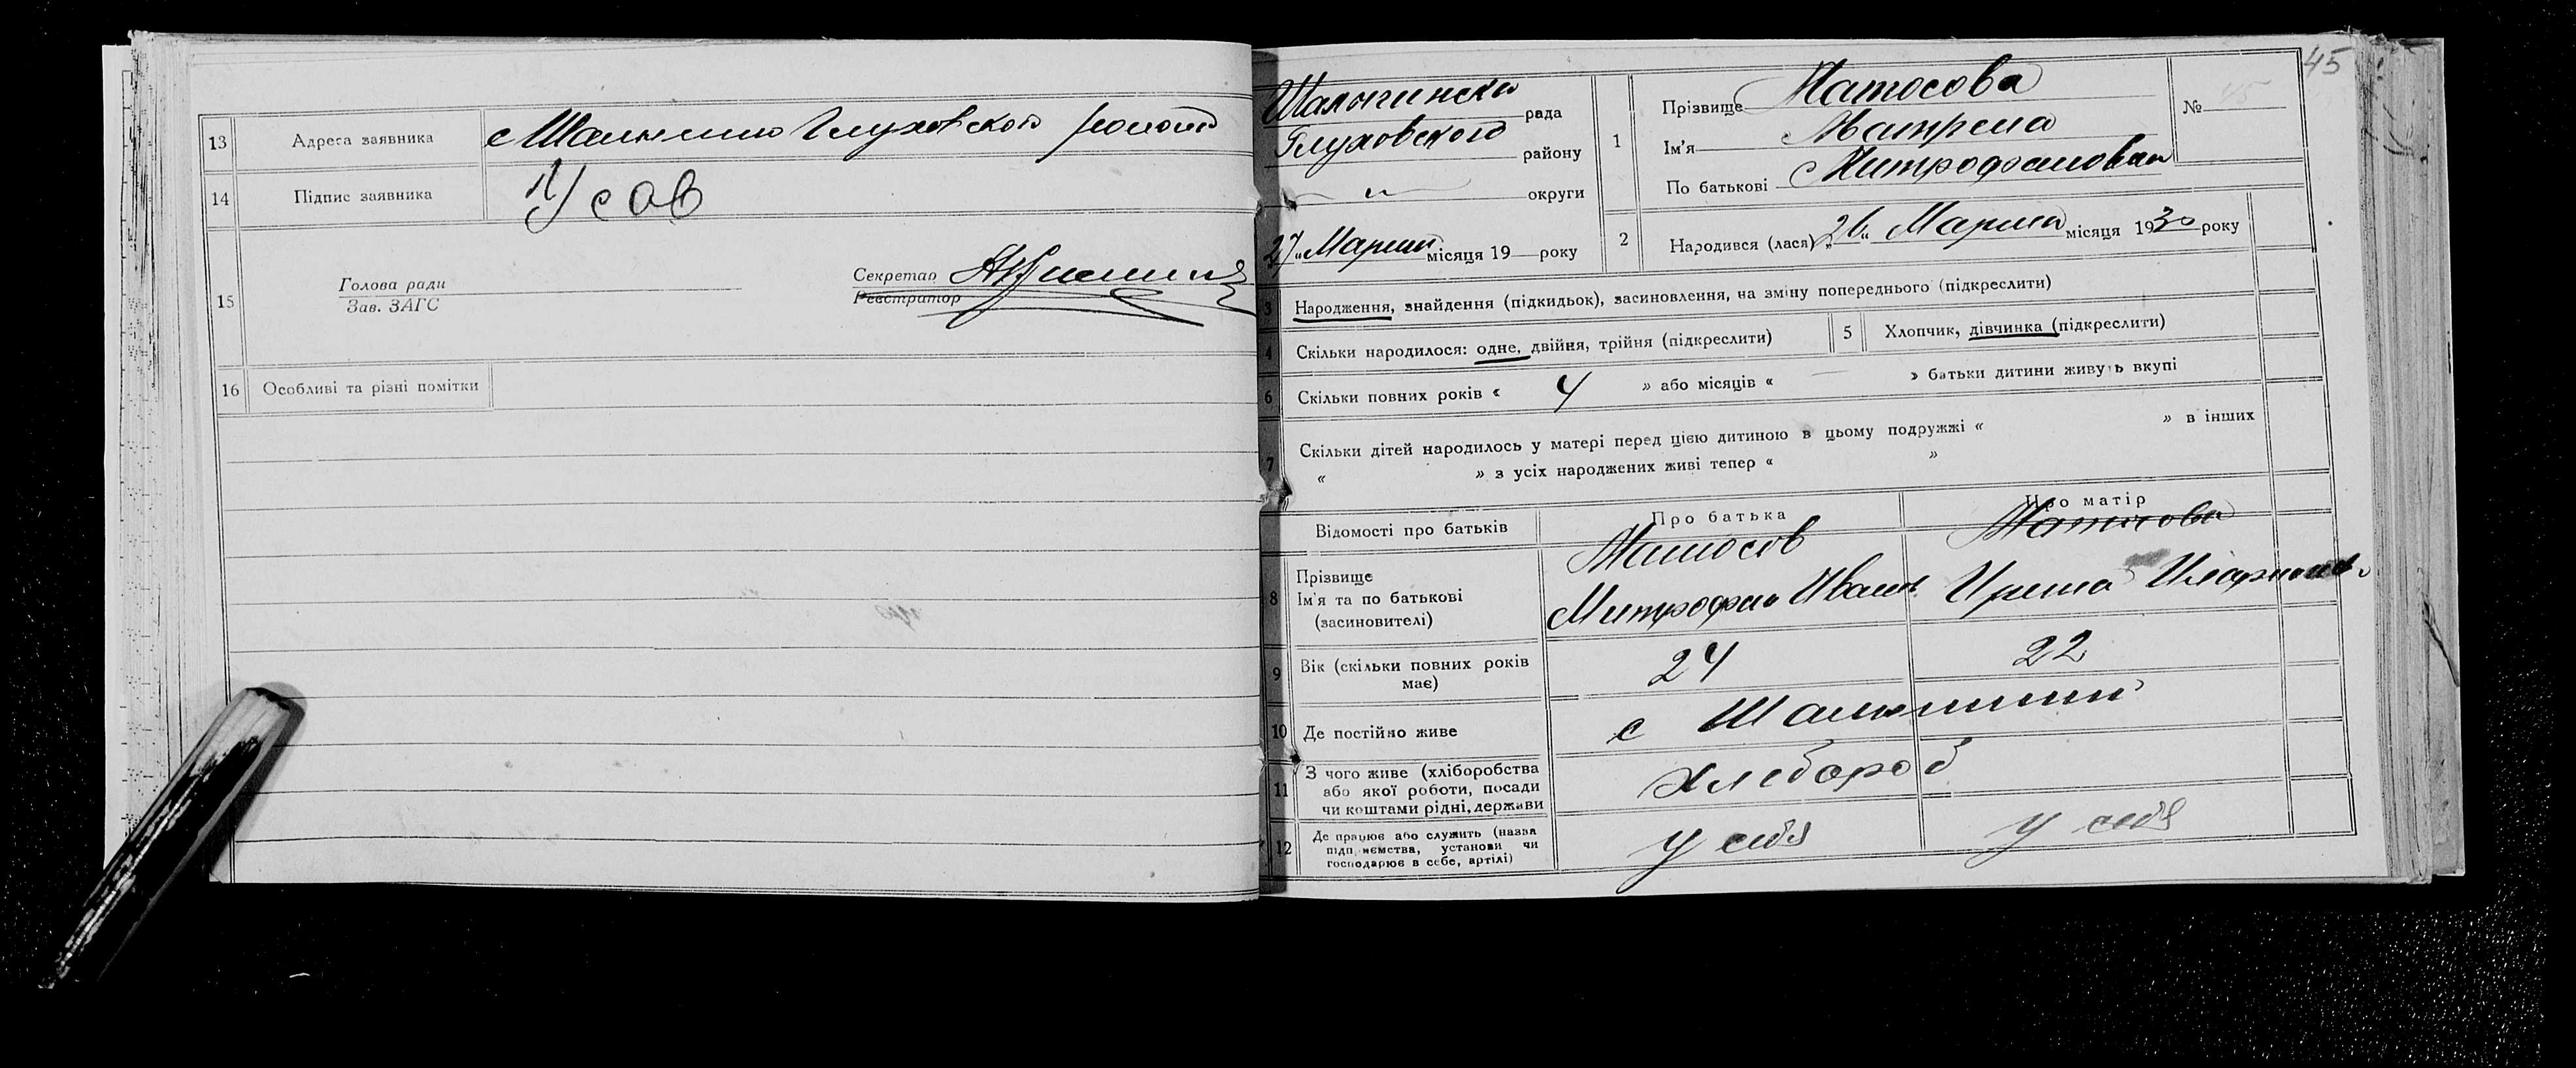 13 Адреса заявника с Шалыгино Глуховского района
14 Підпис заявника Усов
15 Голова ради
Зав. ЗАГС
Секретар
Реєстратор
16 Особливі та різні помітки
45
Шалыгинска рада
Глуховского району
округи
27 „ Марта місяця 19 року
1 Прізвище Матосова
Ім'я Матрена
По батькові Митрофановна
№ 45
2 Народився (лася) „ 26 “ Марта місяця 1930 року
3 Народження, знайдення (підкидьок), засиновлення, на зміну попереднього (підкреслити)
4 Скільки народилося: одне, двійня, трійня (підкреслити)
5 Хлопчик, дівчинка (підкреслити)
6 Скільки повних років « 4 » або місяців « — » батьки дитини живуть вкупі
7 Скільки дітей народилось у матері перед цією дитиною в цьому подружжі « » в інших
« » з усіх народжених живі тепер « »
Відомості про батьків Про батька Про матір
8 Прізвище
Ім'я та по батькові
(засиновителі)
Матосов
Митрофан Иванов
Матосова
Ирина Иларионов.
9 Вік (скільки повних років
має) 24 22
10 Де постійно живе с Шалыгино
11 З чого живе (хліборобства
або якої роботи, посади
чи коштами рідні, держави
Хлебороб
12 Де працює або служить (назва
підприємства, установи чи
господарює в себе, артілі)
у себя у себя